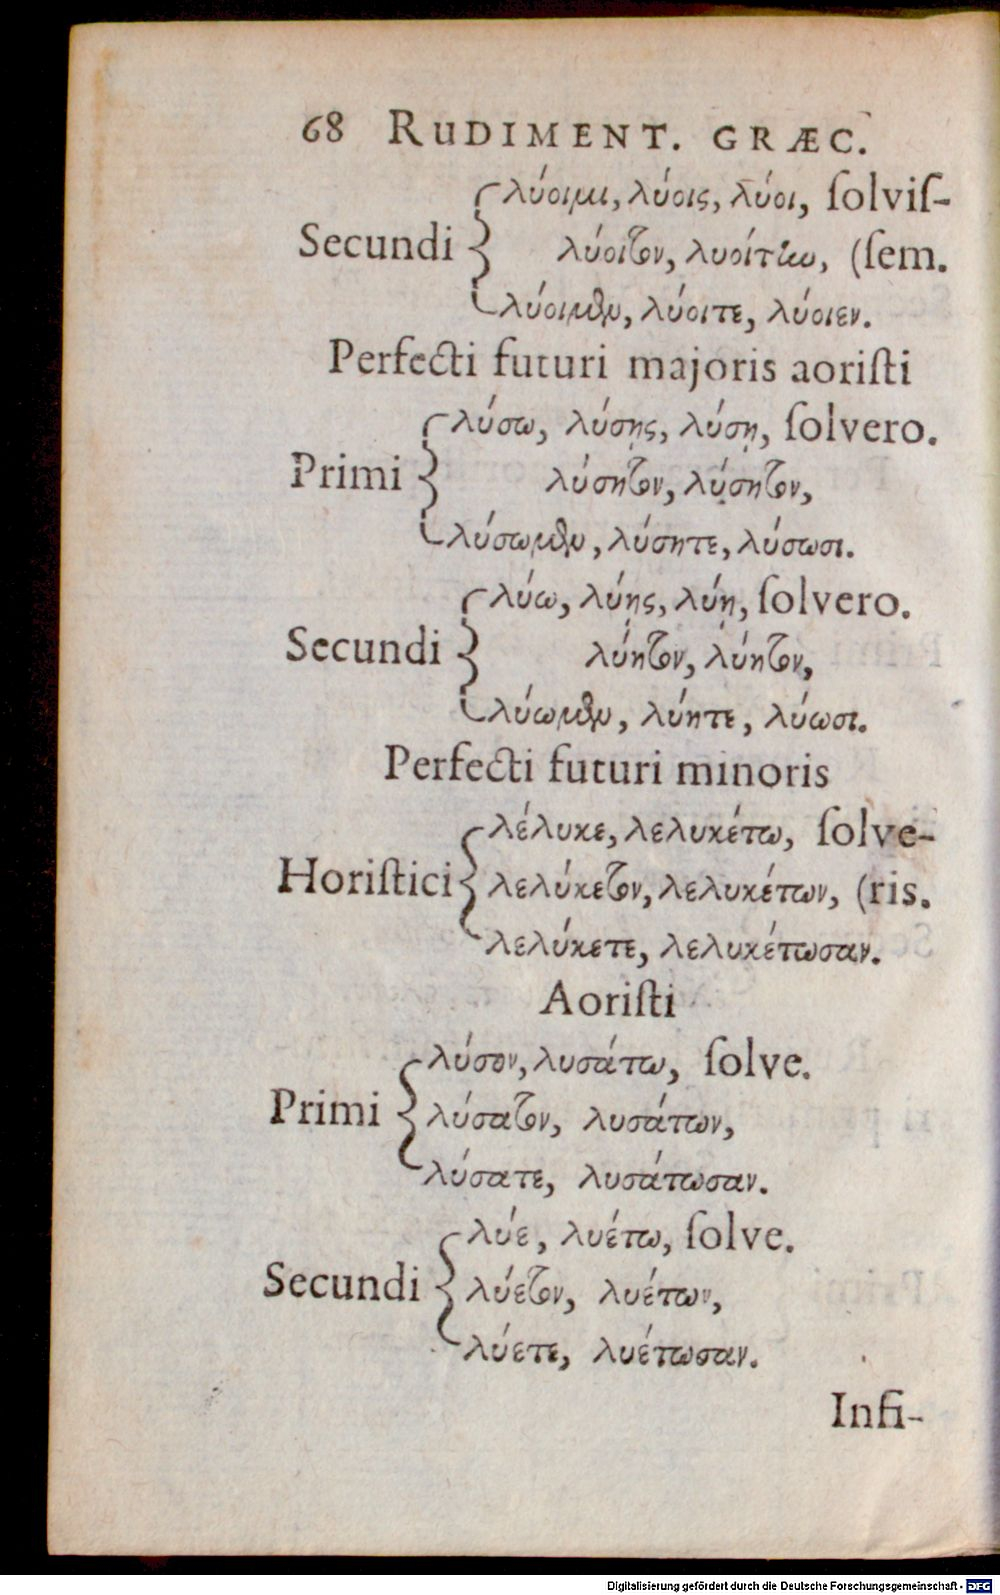 68 RUDIMENT. GRÆC.
λύοιμι, λύοις, λύοι, ſolviſ-
Secundi λύοιτον, λυοίτην, (ſem.
λύοιμεν, λύοιτε, λύοιεν.
Perfecti futuri majoris aoriſti
λύσω, λύσῃς, λύσῃ, ſolvero.
Primi λύσητον, λύσητον,
λύσωμεν, λύσητε, λύσωσι.
λύω, λύῃς, λύῃ, ſolvero.
Secundi λύητον, λύητον,
λύωμεν, λύητε, λύωσι.
Perfecti futuri minoris
λέλυκε, λελυκέτω, ſolve-
Horiſtici λελύκετον, λελυκέτων, (ris.
λελύκετε, λελυκέτωσαν.
Aoriſti
λύσον, λυσάτω, ſolve.
Primi λύσατον, λυσάτων,
λύσατε, λυσάτωσαν.
λύε, λυέτω, ſolve.
Secundi λύετον, λυέτων,
λύετε, λυέτωσαν.
Infi-
Digitalisierung gefördert durch die Deutsche Forschungsgemeinschaft - DFG